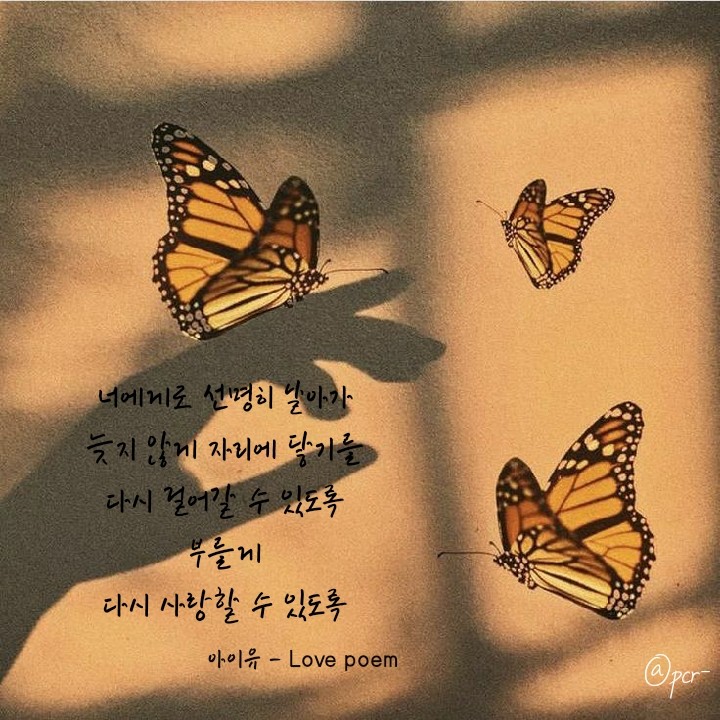 너에게로 선명히 날아가
늦지 않게 자리에 닿기를
다시 걸어갈 수 있도록
부를게
다시 사랑할 수 있도록
아이유 - Love poem
@pcr-